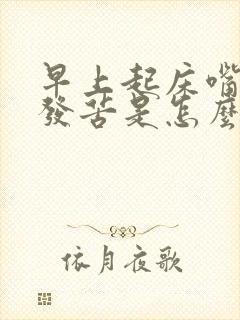 早上起床嘴
發苦是怎麼
依月夜歌